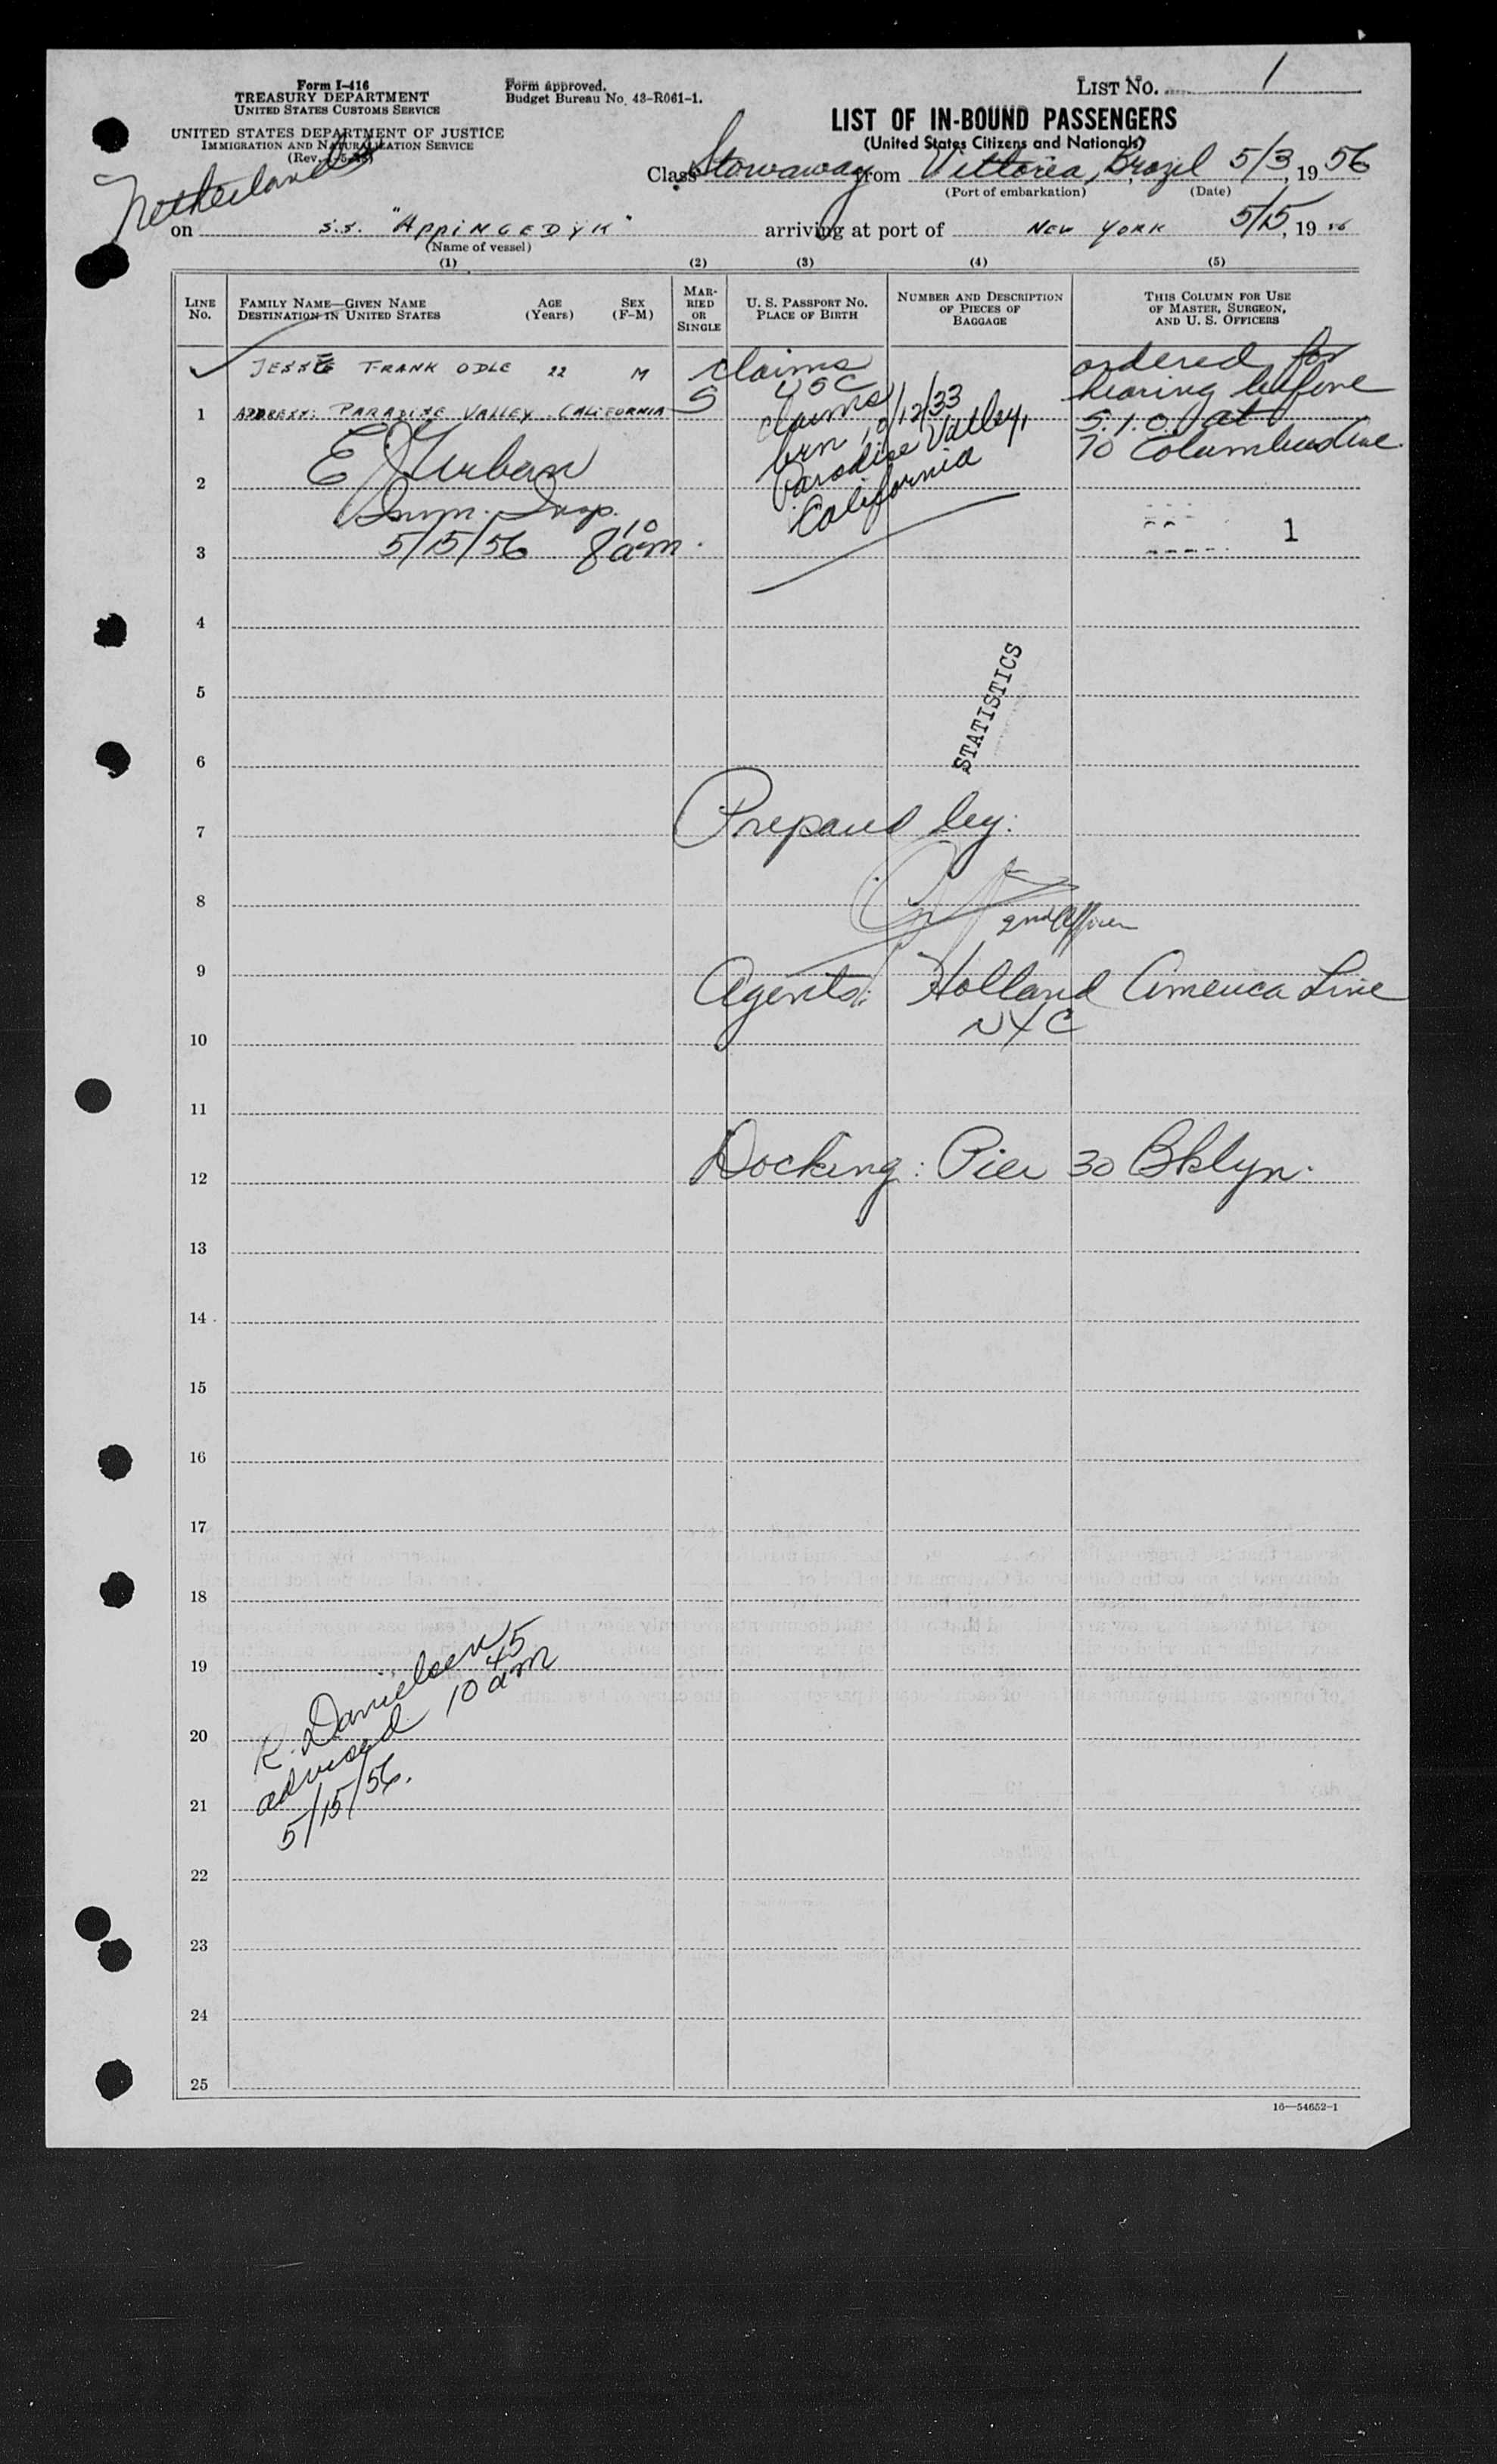 Form I-416
TREASURY DEPARTMENT
UNITED STATES CUSTOMS SERVICE
UNITED STATES DEPARTMENT OF JUSTICE
IMMIGRATION AND NATURALIZATION SERVICE
(Rev.
Form approved.
Budget Bureau No. 43-R061-1.
LIST No. 1
LIST OF IN-BOUND PASSENGERS
(United States Citizens and Nationals)
Netherlands
Class Stowaway from Vittoria, Brazil 5/3, 1956
(Port of embarkation) (Date)
on S.S. "APPINGEDYK" arriving at port of NEW YORK 5/15, 19 56
(Name of vessel)
(1) (2) (3) (4) (5)
LINE No.
FAMILY NAME—GIVEN NAME
DESTINATION IN UNITED STATES
AGE (Years)
SEX (F-M)
MARRIED OR SINGLE
U. S. PASSPORT NO.
PLACE OF BIRTH
NUMBER AND DESCRIPTION
OF PIECES OF
BAGGAGE
THIS COLUMN FOR USE
OF MASTER, SURGEON,
AND U. S. OFFICERS
JESSE FRANK ODLE 22 M
1 ADDRESS: PARADISE VALLEY CALIFORNIA
S
claims
USC
claims
born 10/12/33
Paradise Valley,
California
ordered for
hearing before
S.I.O. at
70 Columbus Ave.
E J Urban
Imm. Insp.
5/15/56 8 10 am.
1
2
3
4
5
6
STATISTICS
7
Prepared by:
8
2nd Officer
9
Agents: Holland America Line
NYC
10
11
12
Docking: Pier 30 Bklyn.
13
14
15
16
17
18
19
20
21
R. Danielsen
advised 10 45 am
5/15/56.
22
23
24
25
16—54652-1